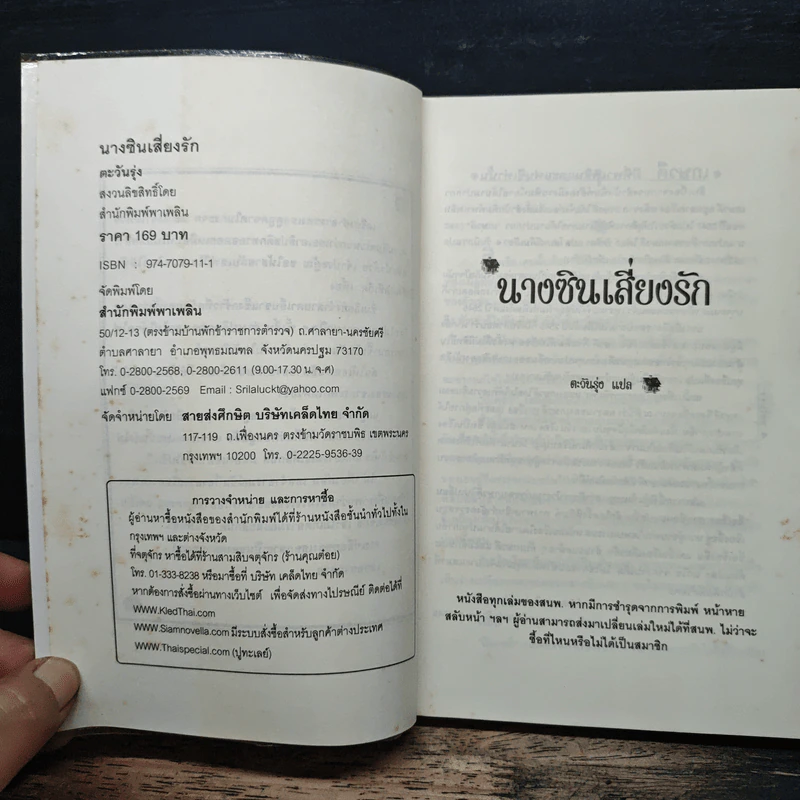 นางซินเสี่ยงรัก
ตะวันรุ่ง
สงวนลิขสิทธิ์โดย
สำนักพิมพ์พาเพลิน
ราคา 169 บาท
ISBN : 974-7079-11-1
จัดพิมพ์โดย
สำนักพิมพ์พาเพลิน
50/12-13 (ตรงข้ามบ้านพักข้าราชการตำรวจ) ถ.ศาลายา-นครชัยศรี
ตำบลศาลายา อำเภอพุทธมณฑล จังหวัดนครปฐม 73170
โทร. 0-2800-2568, 0-2800-2611 (9.00-17.30 น. จ-ศ)
แฟกซ์ 0-2800-2569 Email : Srilaluckt@yahoo.com
จัดจำหน่ายโดย สายส่งศึกษิต บริษัทเคล็ดไทย จำกัด
117-119 ถ.เฟื่องนคร ตรงข้ามวัดราชบพิธ เขตพระนคร
กรุงเทพฯ 10200 โทร. 0-2225-9536-39
การวางจำหน่าย และการหาซื้อ
ผู้อ่านหาซื้อหนังสือของสำนักพิมพ์ได้ที่ร้านหนังสือชั้นนำทั่วไปทั้งใน
กรุงเทพฯ และต่างจังหวัด
ที่จตุจักร หาซื้อได้ที่ร้านสามสิบจตุจักร (ร้านคุณต๋อย)
โทร. 01-333-8238 หรือมาซื้อที่ บริษัท เคล็ดไทย จำกัด
หากต้องการสั่งซื้อผ่านทางเว็บไซต์ เพื่อจัดส่งทางไปรษณีย์ ติดต่อได้ที่
WWW.KledThai.com
WWW.Siamnovella.com มีระบบสั่งซื้อสำหรับลูกค้าต่างประเทศ
WWW.Thaispecial.com (ปูทะเลย์)
นางซินเสี่ยงรัก
ตะวันรุ่ง แปล
หนังสือทุกเล่มของสนพ. หากมีการชำรุดจากการพิมพ์ หน้าหาย
สลับหน้า ฯลฯ ผู้อ่านสามารถส่งมาเปลี่ยนเล่มใหม่ได้ที่สนพ. ไม่ว่าจะ
ซื้อที่ไหนหรือไม่ได้เป็นสมาชิก